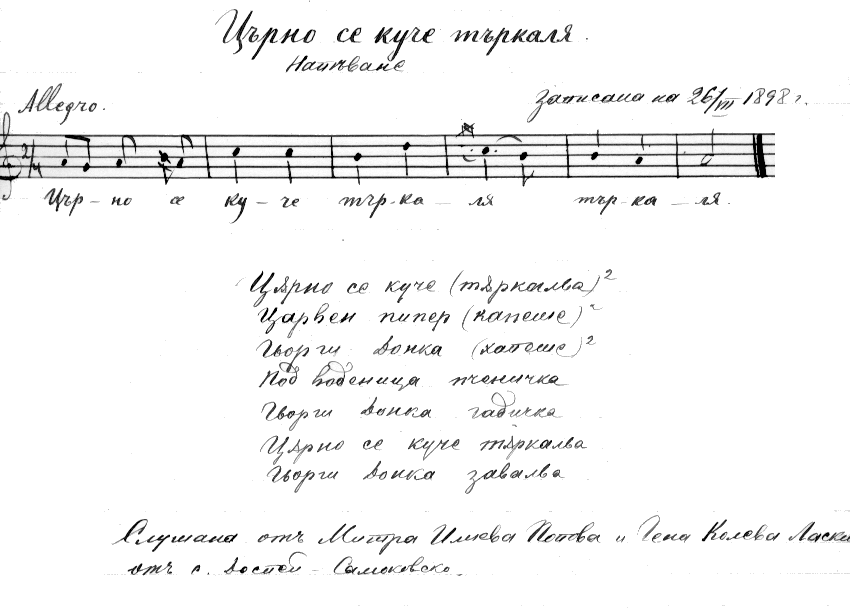 Църно се куче търкаля.
Напѣване
Allegro.
Записана на 26/III 1898 г.
2/4
Цър – но се ку – че тър-ка – ля тър-ка – ля.
Цѫрно се куче (тѫркалва)²
Царвен пипер (капеше)²
Гьорги Донка (хапеше)²
Под воденица пченичка
Гьорги Донка гадичка
Цѫрно се куче тѫркалва
Гьорги Донка завалва
Слушана отъ Митра Илиева Попова и Гена Колева Ласка
отъ с. Доспей – Самоковско.